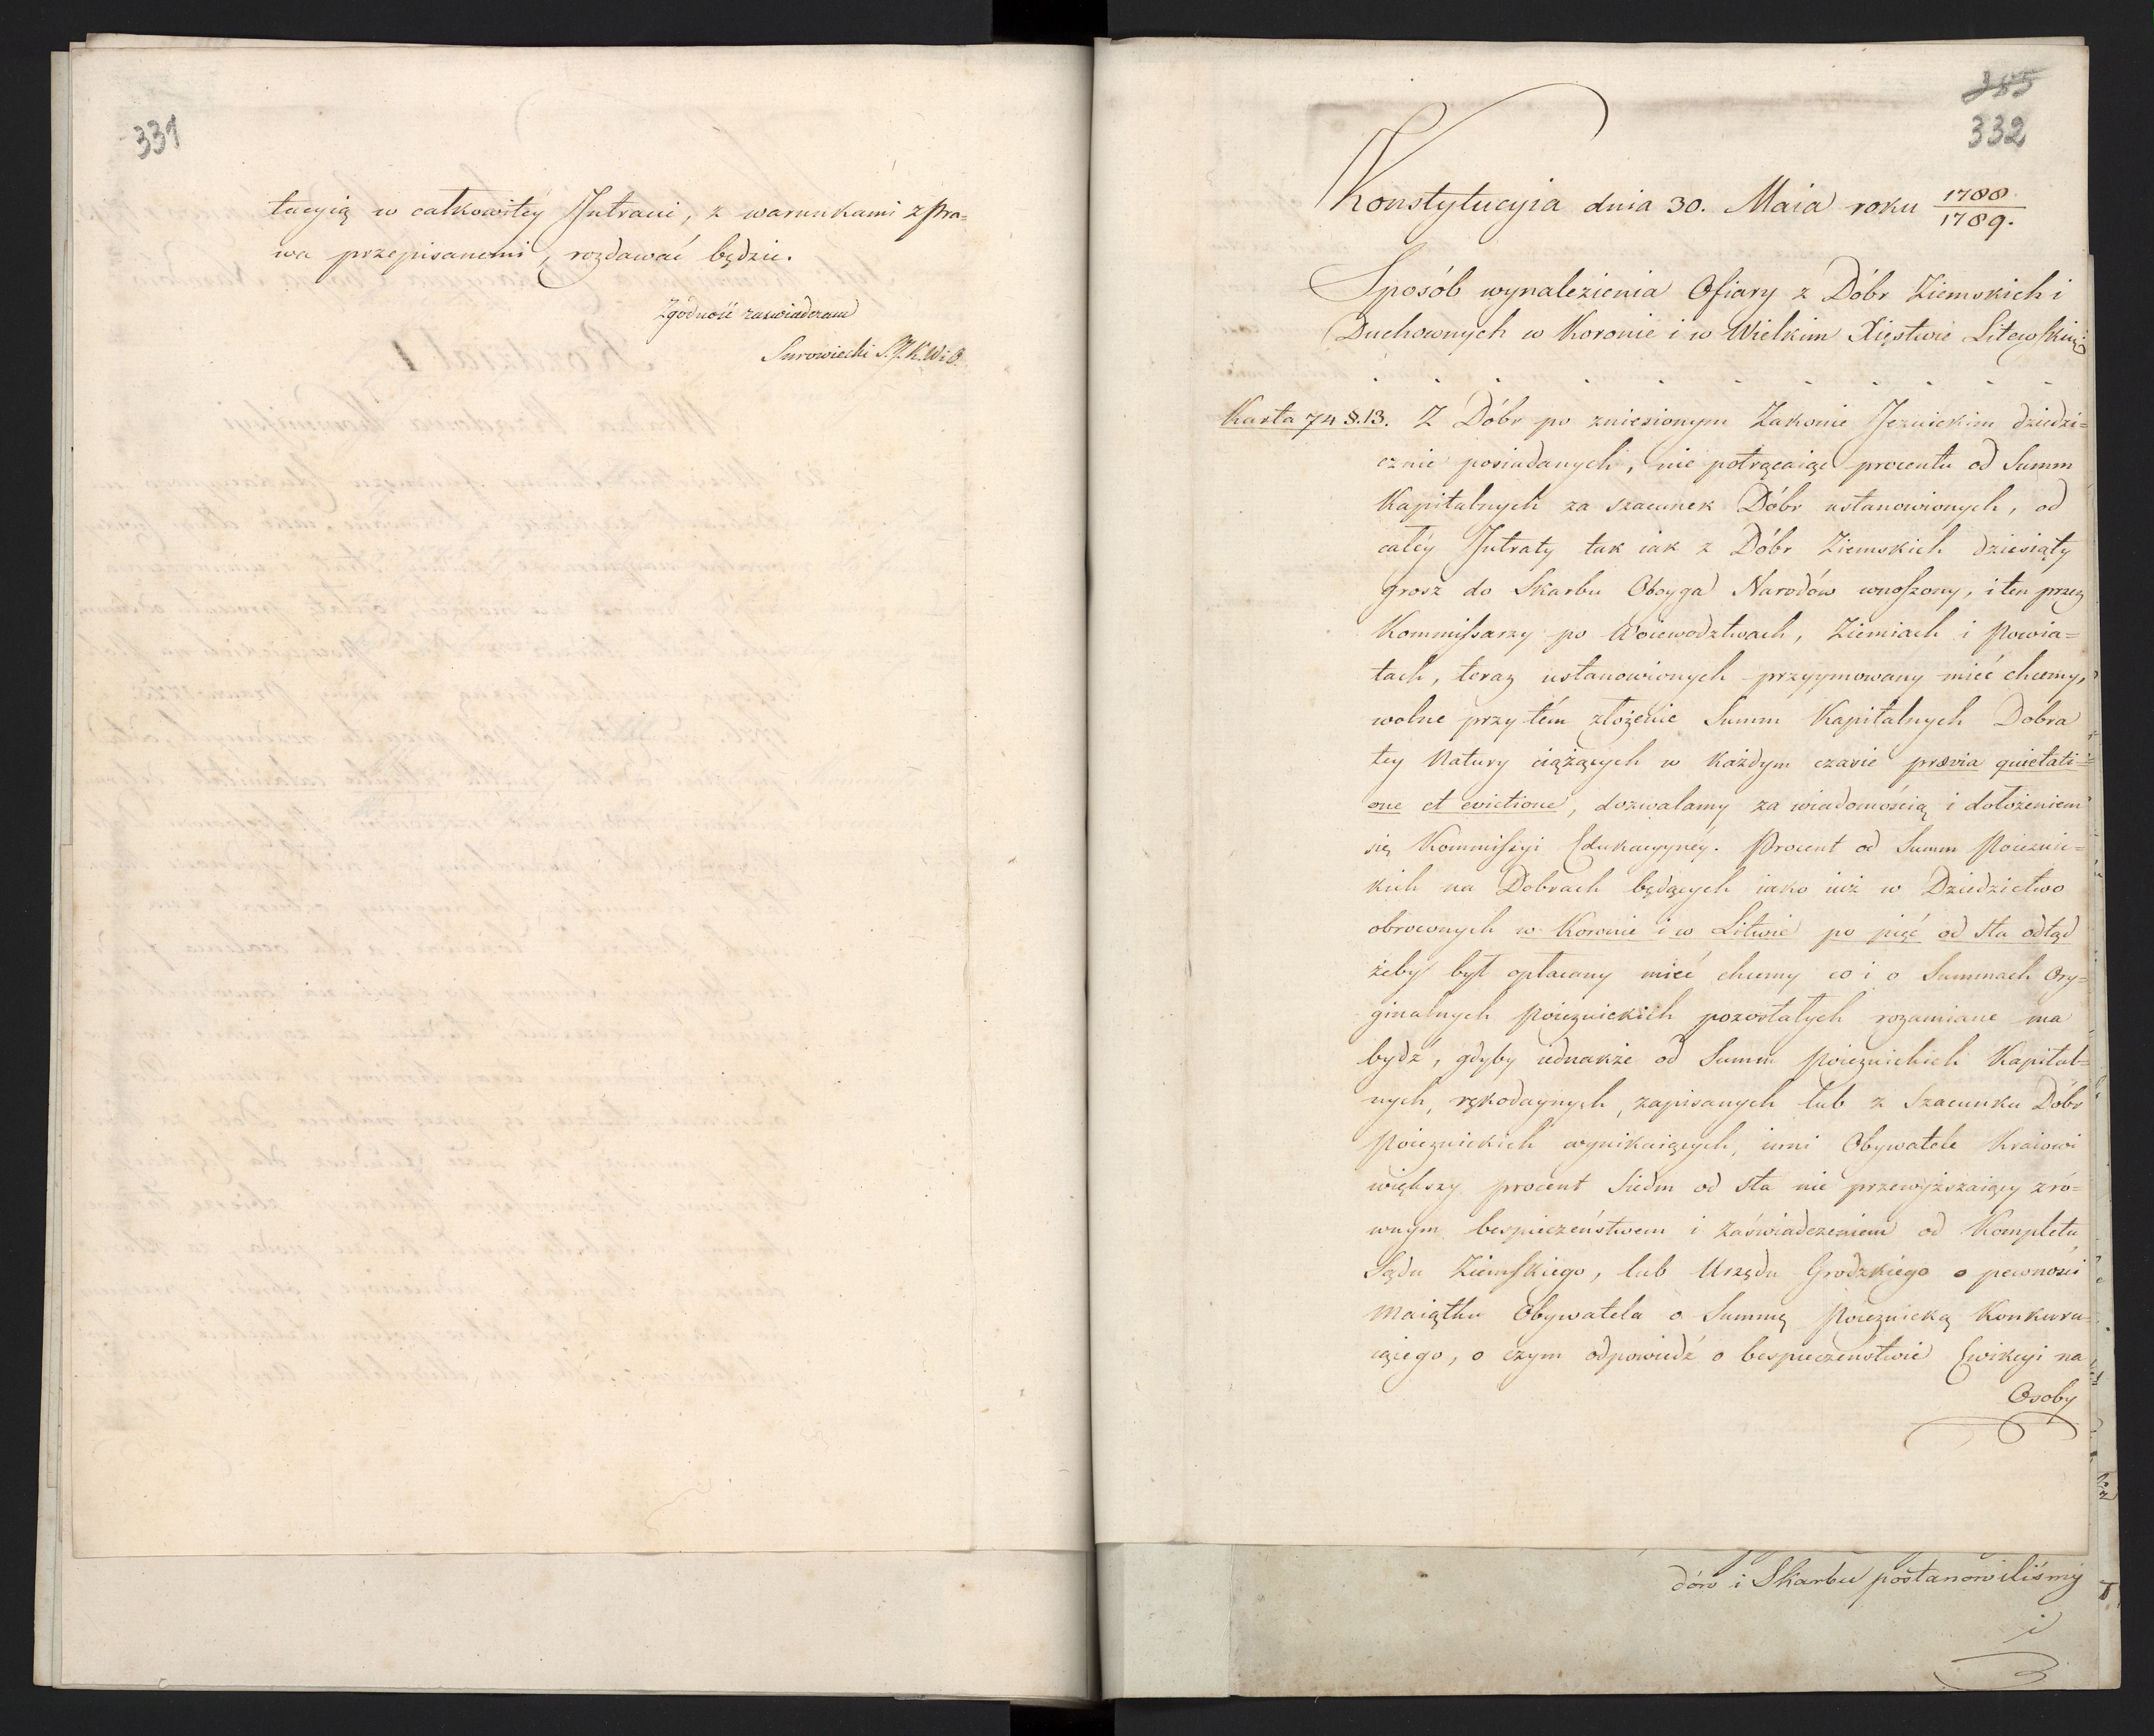 331
tucyią w całkowitey Jntracie, z warunkami z Pra=
wa przepisanemi, rozdawać będzie.
Zgodność zaświadczam
Surowiecki
385
332
Konstytucyia dnia 30. Maia roku 1788/1789.
Sposób wynalezienia Ofiary z Dóbr Ziemskich i
Duchownych w Koronie i w Wielkim Xięstwie Litewskim
. . . . . . . . . .
Karta 74 §. 13. Z Dóbr po zniesionym Zakonie Jezuickim dziedzi=
cznie posiadanych, nie potrącaiąc procentu od Summ
Kapitalnych za szacunek Dóbr ustanowionych, od
całéy Jntraty tak iak z Dóbr Ziemskich dziesiąty
grosz do Skarbu Oboyga Narodów wnoszony, i ten przez
Kommissarzy po Woiewodztwach, Ziemiach i Powia=
tach, teraz ustanowionych przyymowany mieć chcemy,
wolne przy tém złożenie Summ Kapitalnych Dobra
tey Natury ciążących w każdym czasie prævia quietati=
one et evictione, dozwalamy za wiadomością i dołożeniem
się Kommissyi Edukacyynéy. Procent od Summ Poiezuic=
kich na Dobrach będących iako iuż w Dziedzictwo
obroconych w Koronie i w Litwie po pięć od sta odtąd
żeby był opłacany mieć chcemy co i o Summach Ory=
ginalnych Poiezuickich pozostałych rozumiane ma
bydź, gdyby iednakże od Summ Poiezuickich Kapital=
nych, rękodaynych, zapisanych lub z Szacunku Dóbr
Poiezuickich wynikaiących, inni Obywatele Kraiowi
większy procent Siedm od sta nie przewyższaiący z ró=
wnym bespieczeństwem i zaświadczeniem od Kompletu
Sądu Ziemskiego, lub Urzędu Grodzkiego o pewności
Maiątku Obywatela o Summę Poiezuicką Konkuru=
iącego, o czym odpowiedź o bespieczenstwie Ewikcyi na
Osoby
dów i Skarbu postanowiliśmy
i